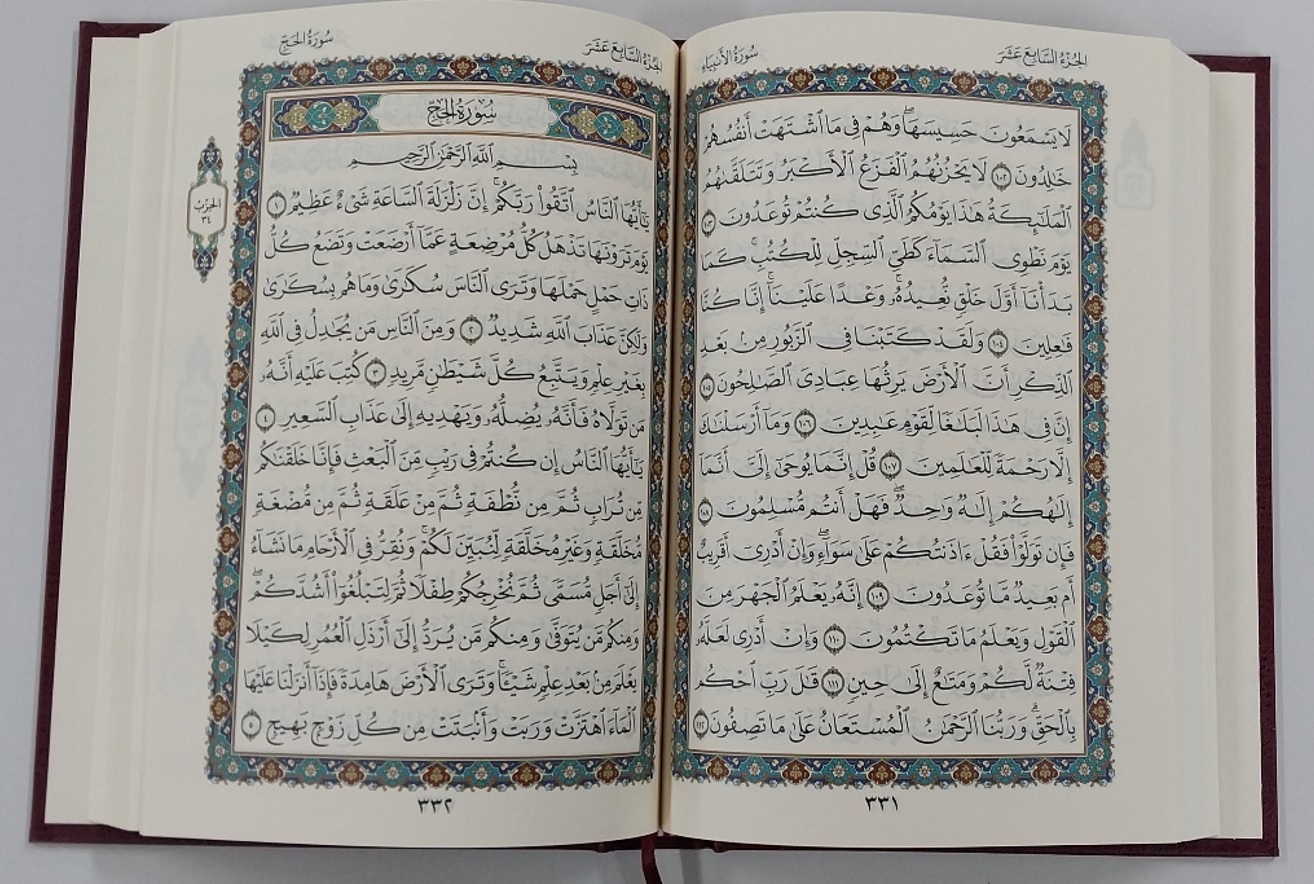 الجزء السابع عشر
سورة الأنبياء
لَا يَسْمَعُونَ حَسِيسَهَا ۖ وَهُمْ فِى مَا ٱشْتَهَتْ أَنفُسُهُمْ
خَٰلِدُونَ ١٠٢ لَا يَحْزُنُهُمُ ٱلْفَزَعُ ٱلْأَكْبَرُ وَتَتَلَقَّىٰهُمُ
ٱلْمَلَٰٓئِكَةُ هَٰذَا يَوْمُكُمُ ٱلَّذِى كُنتُمْ تُوعَدُونَ ١٠٣
يَوْمَ نَطْوِى ٱلسَّمَآءَ كَطَىِّ ٱلسِّجِلِّ لِلْكُتُبِ ۚ كَمَا
بَدَأْنَآ أَوَّلَ خَلْقٍ نُّعِيدُهُۥ ۚ وَعْدًا عَلَيْنَآ ۚ إِنَّا كُنَّا
فَٰعِلِينَ ١٠٤ وَلَقَدْ كَتَبْنَا فِى ٱلزَّبُورِ مِنۢ بَعْدِ
ٱلذِّكْرِ أَنَّ ٱلْأَرْضَ يَرِثُهَا عِبَادِىَ ٱلصَّٰلِحُونَ ١٠٥
إِنَّ فِى هَٰذَا لَبَلَٰغًا لِّقَوْمٍ عَٰبِدِينَ ١٠٦ وَمَآ أَرْسَلْنَٰكَ
إِلَّا رَحْمَةً لِّلْعَٰلَمِينَ ١٠٧ قُلْ إِنَّمَا يُوحَىٰٓ إِلَىَّ أَنَّمَآ
إِلَٰهُكُمْ إِلَٰهٌ وَٰحِدٌ ۖ فَهَلْ أَنتُم مُّسْلِمُونَ ١٠٨
فَإِن تَوَلَّوْا۟ فَقُلْ ءَاذَنتُكُمْ عَلَىٰ سَوَآءٍ ۖ وَإِنْ أَدْرِىٓ أَقَرِيبٌ
أَم بَعِيدٌ مَّا تُوعَدُونَ ١٠٩ إِنَّهُۥ يَعْلَمُ ٱلْجَهْرَ مِنَ
ٱلْقَوْلِ وَيَعْلَمُ مَا تَكْتُمُونَ ١١٠ وَإِنْ أَدْرِى لَعَلَّهُۥ
فِتْنَةٌ لَّكُمْ وَمَتَٰعٌ إِلَىٰ حِينٍ ١١١ قَٰلَ رَبِّ ٱحْكُم
بِٱلْحَقِّ ۗ وَرَبُّنَا ٱلرَّحْمَٰنُ ٱلْمُسْتَعَانُ عَلَىٰ مَا تَصِفُونَ ١١٢
٣٣١
الجزء السابع عشر
سورة الحج
سُورَةُ الحَجّ
بِسْمِ ٱللَّهِ ٱلرَّحْمَٰنِ ٱلرَّحِيمِ
يَٰٓأَيُّهَا ٱلنَّاسُ ٱتَّقُوا۟ رَبَّكُمْ ۚ إِنَّ زَلْزَلَةَ ٱلسَّاعَةِ شَىْءٌ عَظِيمٌ ١
يَوْمَ تَرَوْنَهَا تَذْهَلُ كُلُّ مُرْضِعَةٍ عَمَّآ أَرْضَعَتْ وَتَضَعُ كُلُّ
ذَاتِ حَمْلٍ حَمْلَهَا وَتَرَى ٱلنَّاسَ سُكَٰرَىٰ وَمَا هُم بِسُكَٰرَىٰ
وَلَٰكِنَّ عَذَابَ ٱللَّهِ شَدِيدٌ ٢ وَمِنَ ٱلنَّاسِ مَن يُجَٰدِلُ فِى ٱللَّهِ
بِغَيْرِ عِلْمٍ وَيَتَّبِعُ كُلَّ شَيْطَٰنٍ مَّرِيدٍ ٣ كُتِبَ عَلَيْهِ أَنَّهُۥ
مَن تَوَلَّاهُ فَأَنَّهُۥ يُضِلُّهُۥ وَيَهْدِيهِ إِلَىٰ عَذَابِ ٱلسَّعِيرِ ٤
يَٰٓأَيُّهَا ٱلنَّاسُ إِن كُنتُمْ فِى رَيْبٍ مِّنَ ٱلْبَعْثِ فَإِنَّا خَلَقْنَٰكُم
مِّن تُرَابٍ ثُمَّ مِن نُّطْفَةٍ ثُمَّ مِنْ عَلَقَةٍ ثُمَّ مِن مُّضْغَةٍ
مُّخَلَّقَةٍ وَغَيْرِ مُخَلَّقَةٍ لِّنُبَيِّنَ لَكُمْ ۚ وَنُقِرُّ فِى ٱلْأَرْحَامِ مَا نَشَآءُ
إِلَىٰٓ أَجَلٍ مُّسَمًّى ثُمَّ نُخْرِجُكُمْ طِفْلًا ثُمَّ لِتَبْلُغُوٓا۟ أَشُدَّكُمْ ۖ
وَمِنكُم مَّن يُتَوَفَّىٰ وَمِنكُم مَّن يُرَدُّ إِلَىٰٓ أَرْذَلِ ٱلْعُمُرِ لِكَيْلَا
يَعْلَمَ مِنۢ بَعْدِ عِلْمٍ شَيْـًٔا ۚ وَتَرَى ٱلْأَرْضَ هَامِدَةً فَإِذَآ أَنزَلْنَا عَلَيْهَا
ٱلْمَآءَ ٱهْتَزَّتْ وَرَبَتْ وَأَنۢبَتَتْ مِن كُلِّ زَوْجٍۭ بَهِيجٍ ٥
الحزب
٣٤
٣٣٢